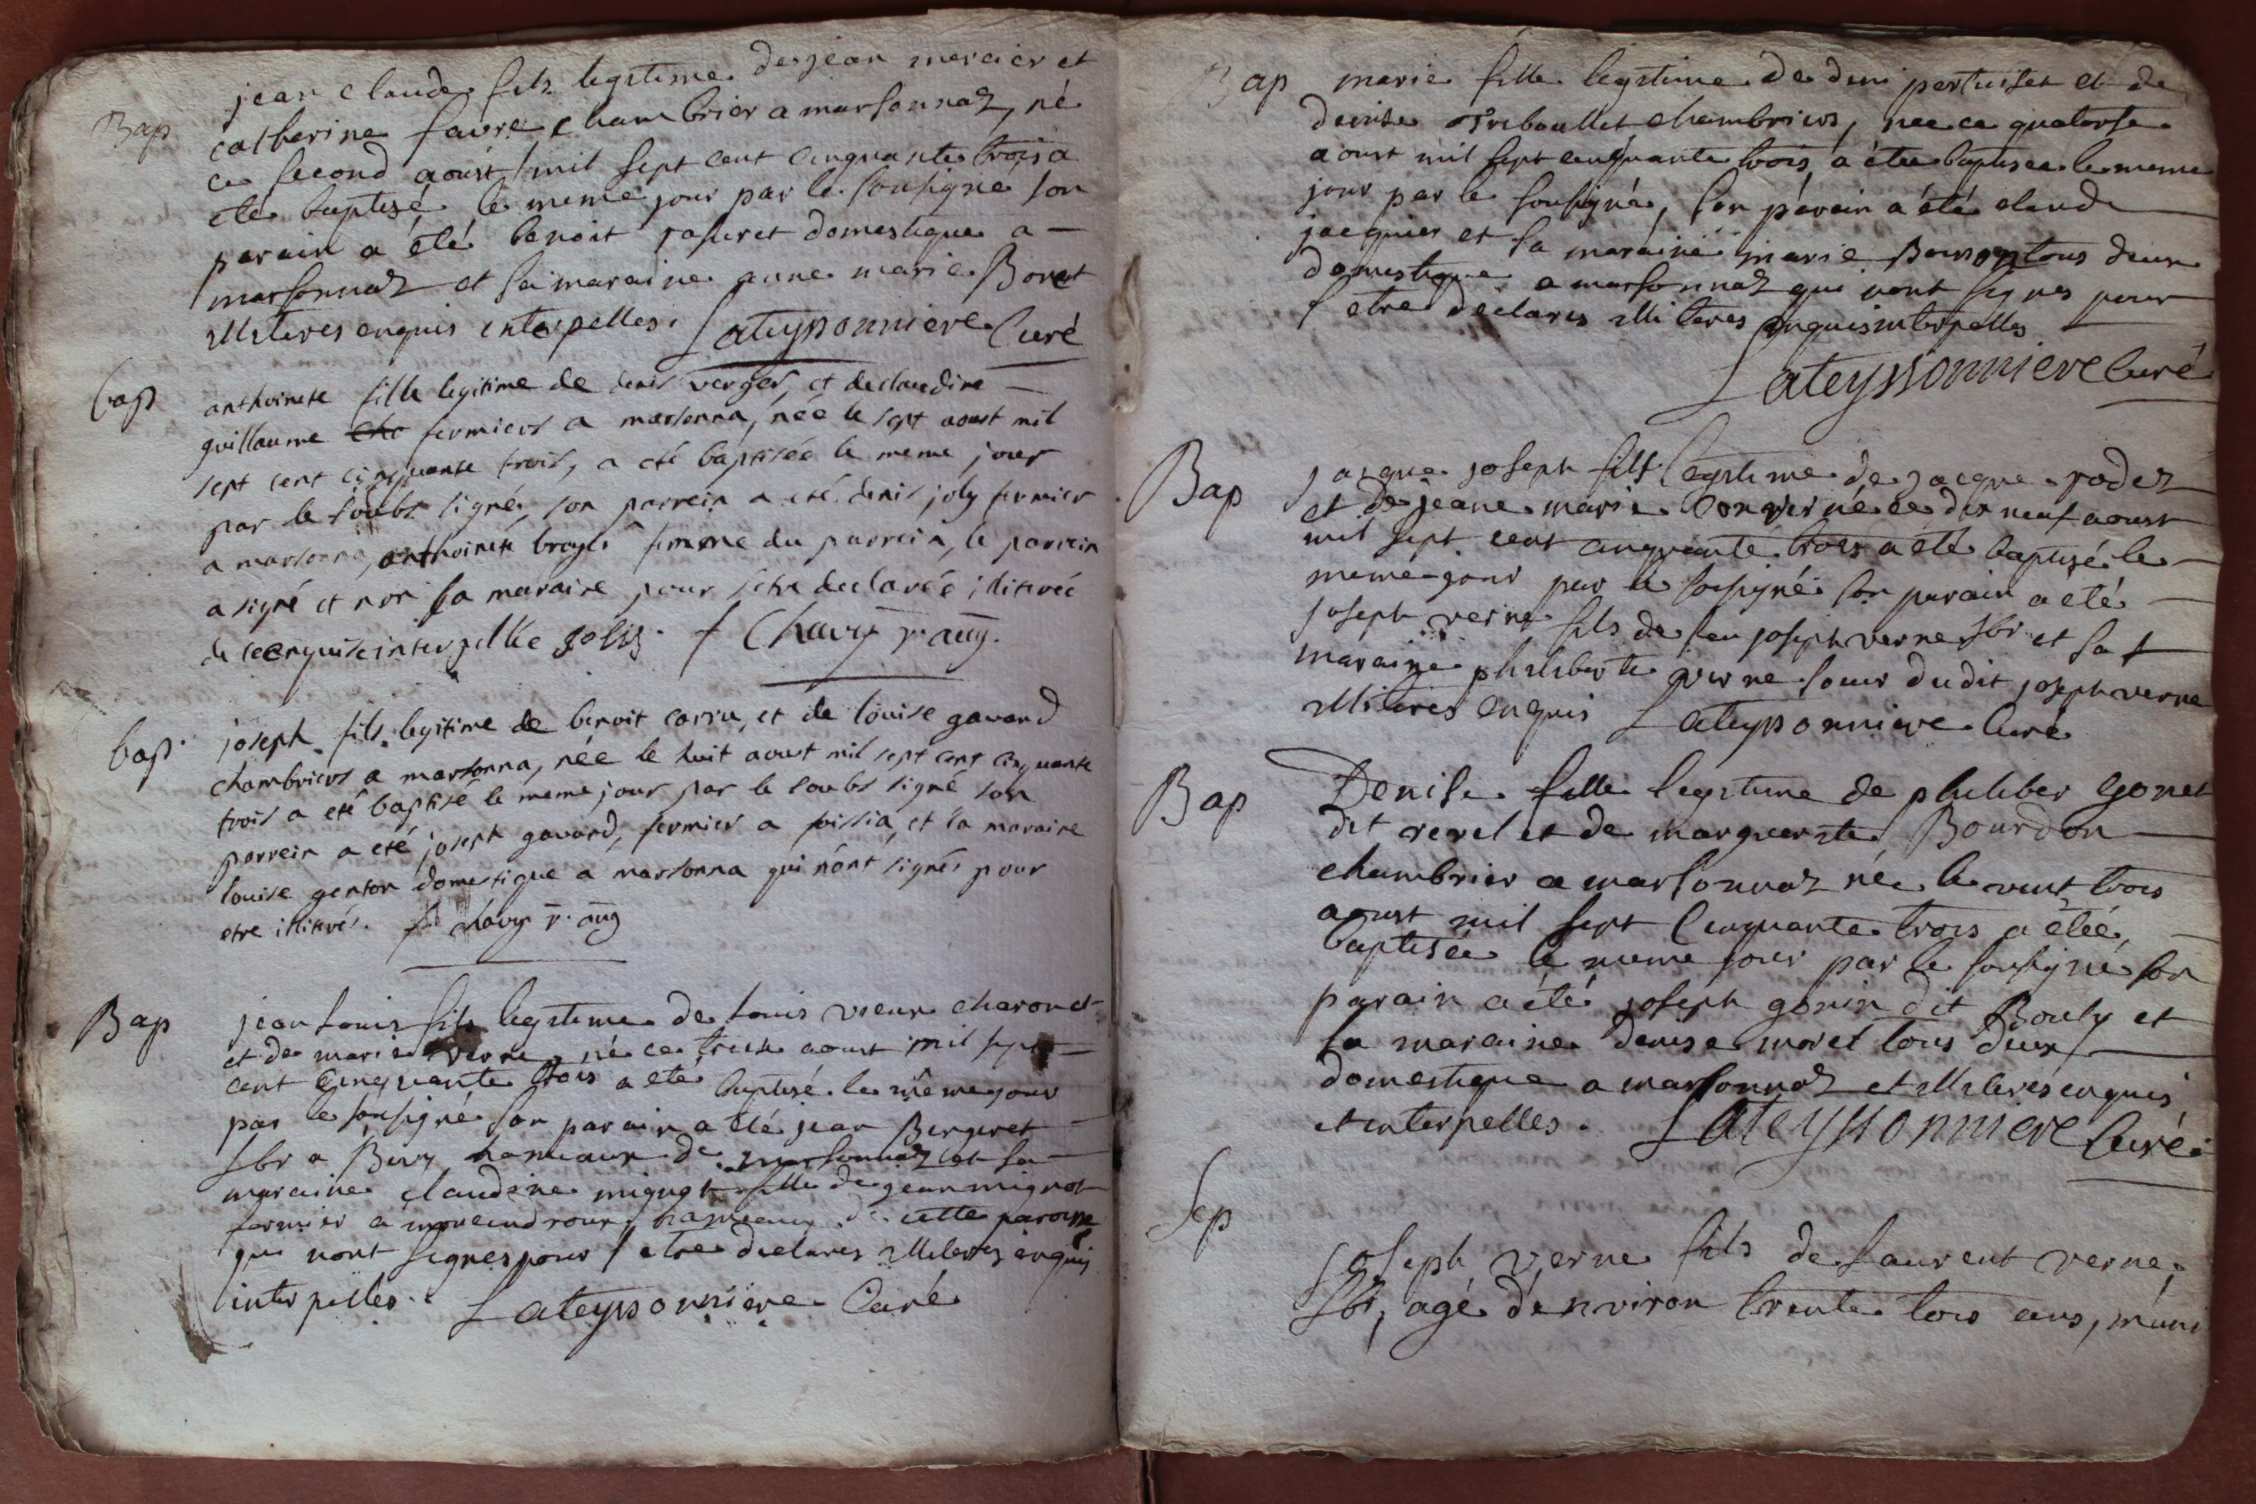 Bap jean claude fils legitime de jean mercier et
catherine favre chambrier a marsonnaz, né
ce second aoust mil sept cent cinquante trois a
eté baptisé le meme jour par le sousigné son
parain a été benoit domestique a
marsonnaz et sa maraine anne marie Borat
illiteres enquis interpelles. Lateyssonniere Curé
bap anthoinete fille legitime de denis verger, et de claudine
guillaume fermiers a marsonna, née le sept aoust mil
sept cent cinquante trois, a eté baptisée le meme jour
par le soubs signé, son parrein a eté denis joly fermier
a marsonna, anthoinete femme du parrein, le parrein
a signé et non sa maraine pour setre declarée illiterée
de ce enquise interpellée Jolly f Chavy r. aug.
bap. joseph fils legitime de benoit carru, et de louise gavand
chambriers a marsonna, née le huit aoust mil sept cent cinquante
trois a eté baptisé le meme jour par le soubs signé son
parrein a eté joseph gavand, fermier a foissia, et la maraine
louise genton domestique a marsonna qui nont signés pour
etre illiterés. f chavy r. aug
Bap jean Louis fils legitime de Louis vieux charon et
et de marie verne né ce treise aoust mil sept
cent Cinquante trois a eté baptisé le même jour
par le sousigné son parain a été jean Bergeret
lbr a hameaux de marsonnaz et sa
maraine claudine mignot fille de jean mignot
fermier a hameaux de cette paroisse
qui nont signes pour s etre declares illiteres enquis
interpelles. Lateyssonniere Curé
Bap marie fille legitime de deni pertuiset et de
denise Treboullet chambriers, née ce quatorse
aoust mil sept cinquante trois, a étée baptisée le meme
jour par le sousigné, son parain a été claude
jacquier et sa maraine marie tous deux
domestique a marsonnaz qui nont signes pour
s etre declares illiteres enquis interpelles
Lateyssonniere Curé
Bap jacque joseph fils legitime de jacque rodez
et de jeane marie né ce dix neuf aoust
mil sept cent cinquante trois a été baptisé le
meme jour par le sousigné son parain a eté
joseph verne fils de feu joseph verne lbr et sa
maraine philiberte verne soeur dudit joseph verne
illiteres enquis Lateyssonniere Curé
Bap Denise fille legitime de philiber gonet
dit et de marguerite Bourdon
chambrier a marsonnaz née le vint trois
aoust mil sept Cinquante trois a étée
baptisée le meme jour par le sousigné son
parain a été joseph gonin dit Bouly et
sa maraine denise morel tous deux
domestique a marsonnaz et illiteres enquis
et interpelles. Lateyssonniere Curé
Sep joseph verne fils de Laurent verne,
lbr, agé d'environ trente trois ans, muni